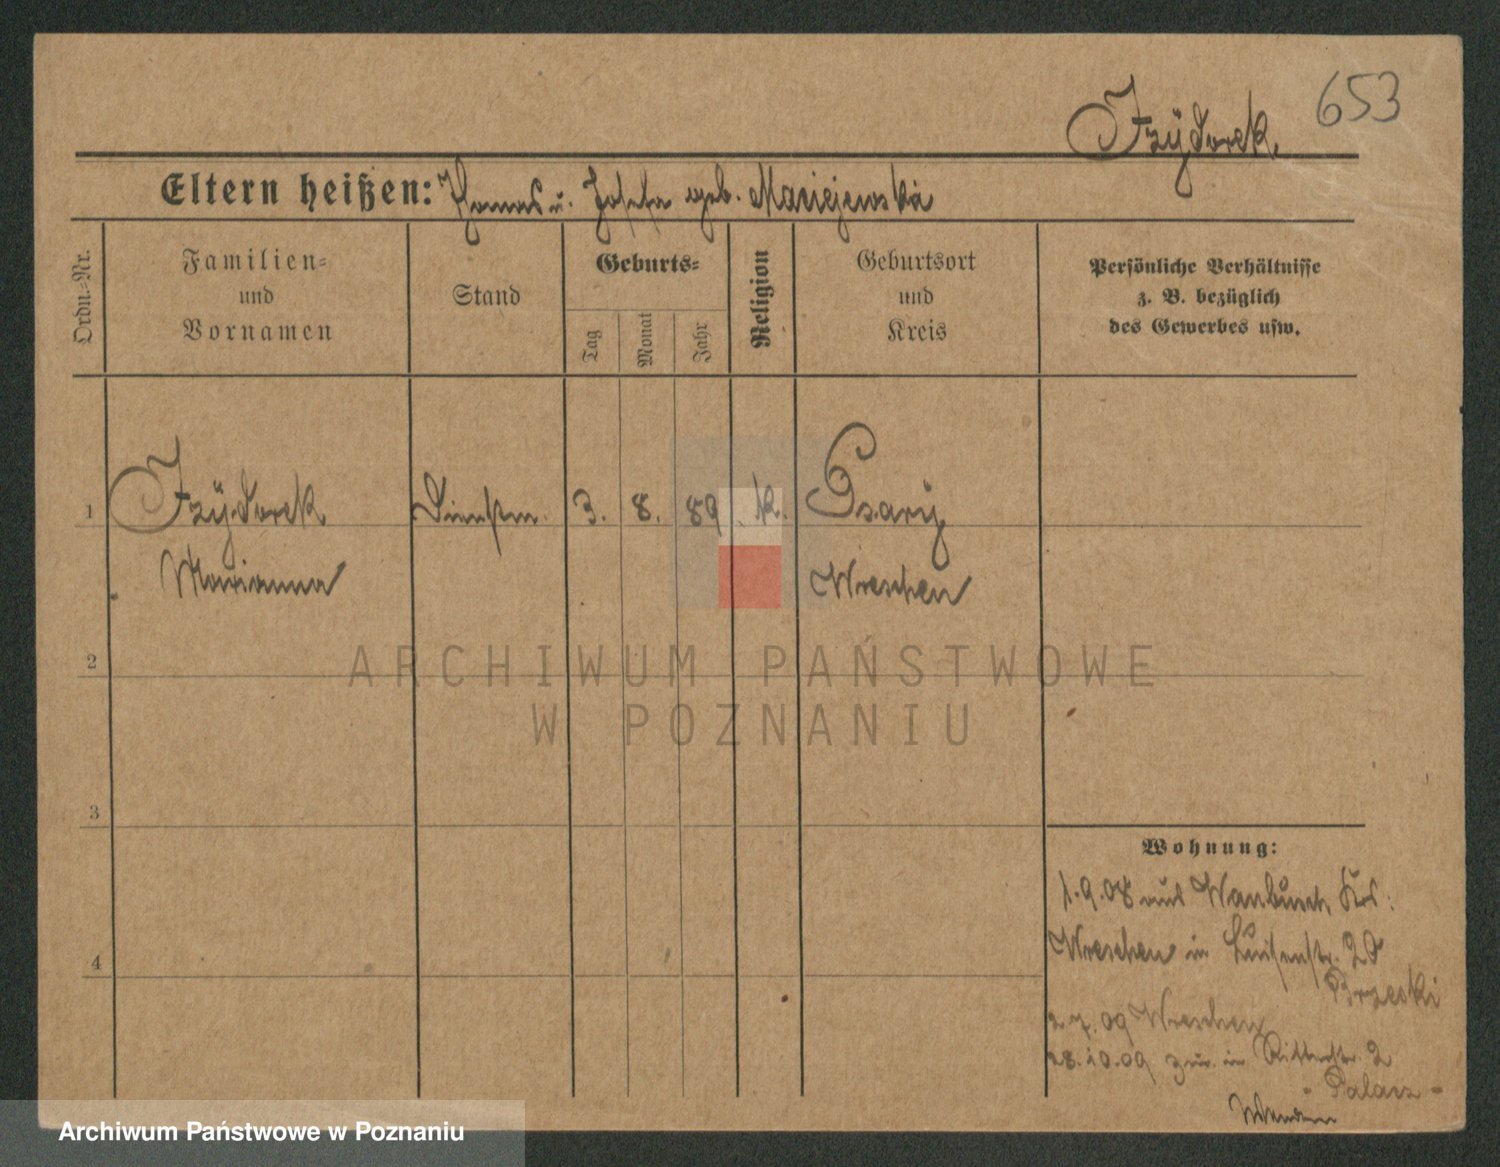 653
Izÿdorek
Eltern heißen: Thomas u. Josefa geb. Maciejewska
Ordn.-Nr.
Familien-
und
Vornamen
Stand
Geburts-
Tag
Monat
Jahr
Religion
Geburtsort
und
Kreis
Persönliche Verhältnisse
z. B. bezüglich
des Gewerbes usw.
1 Izÿdorek Dienstm. 3. 8. 89. k. Psarÿ
Marianna Wreschen
2
ARCHIWUM PAŃSTWOWE
W POZNANIU
3
Wohnung:
1.9.08 aus Krs:
Wreschen in Luisenstr. 20
Brzeski
2.7.09 Wreschen
28.10.09 zur. in Ritterstr. 2
- Palacz -
4
Archiwum Państwowe w Poznaniu